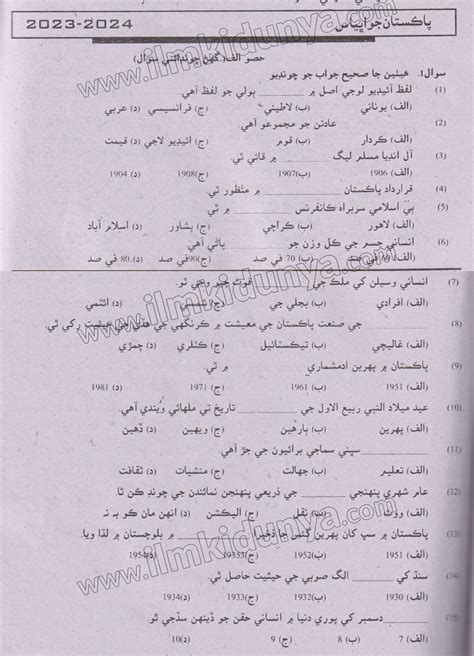 پاڪستان جو اڀياس
2023-2024
حصو الف (گهڻ چونڊائتي سوال)
سوال1. هيٺين جا صحيح جواب جو چونڊيو
(1) لفظ آئيڊيو لوجي اصل ۾ ______ ٻولي جو لفظ آهي.
(الف) يوناني (ب) لاطيني (ج) فرانسيسي (د) عربي
(2) عادتن جو مجموعو آهي
(الف) ڪردار (ب) قوم (ج) آئيڊيو لاجي (د) قيمت
(3) آل انڊيا مسلم ليگ ______ ۾ قائي ٿي.
(الف) 1906 (ب) 1907 (ج) 1908 (د) 1904
(4) قرارداد پاڪستان ______ ۾ منظور ٿي.
(5) ٻي اسلامي سربراه ڪانفرنس ______ ۾ ٿي.
(الف) لاهور (ب) ڪراچي (ج) پشاور (د) اسلام آباد
(6) انساني جسم جي ڪل وزن جو ______ پاڻي آهي
(الف) 60 في صد (ب) 70 في صد (ج) 90 في صد (د) 80 في صد
(7) انساني وسيلن کي ملڪ جي ______ قوت چيو وڃي ٿو.
(الف) افرادي (ب) بجلي جي (ج) شمسي (د) ائٽمي
(8) ______ جي صنعت پاڪستان جي معيشت ۾ ڪرنگهي جي هڏي جي حيثيت رکي ٿي.
(الف) غاليچي (ب) ٽيڪسٽائيل (ج) ڪٽلري (د) چمڙي
(9) پاڪستان ۾ پهرين آدمشماري ______ ۾ ٿي.
(الف) 1951 (ب) 1961 (ج) 1971 (د) 1981
(10) عيد ميلاد النبي ربيع الاول جي ______ تاريخ تي ملهائي ويندي آهي.
(الف) پهرين (ب) ٻارهين (ج) ويهين (د) ڏهين
(11) ______ سڀني سماجي برائيون جي جڙ آهي.
(الف) تعليم (ب) جهالت (ج) منشيات (د) ثقافت
(12) عام شهري پنهنجي ______ جي ذريعي پنهنجن نمائندن جي چونڊ ڪن ٿا.
(الف) ووٽ (ب) نقل (ج) اليڪشن (د) انهن مان ڪو به نہ
(13) پاڪستان ۾ سڀ کان پهرين گئس جا ذخيرا ______ ۾ بلوچستان ۾ لڌا ويا.
(الف) 1951 (ب) 1952 (ج) 19353 (د) 1954
(14) سنڌ کي ______ الگ صوبي جي حيثيت حاصل ٿي.
(الف) 1930 (ب) 1932 (ج) 1936 (د) 1934
(15) ______ دسمبر کي پوري دنيا ۾ انساني حقن جو ڏينهن سڏجي ٿو.
(الف) 7 (ب) 8 (ج) 9 (د) 10
www.ilmkidunya.com
www.ilmkidunya.com
www.ilmkidunya.com
www.ilmkidunya.com